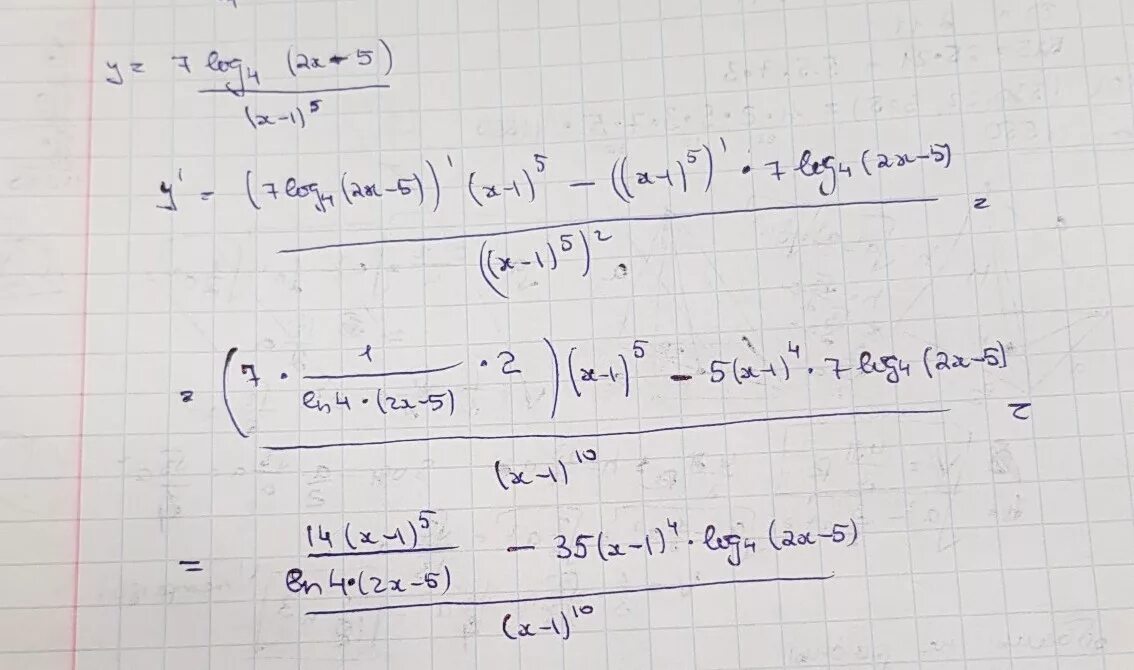 y = 7 log₄ (2x-5)
(x-1)⁵
y' = (7log₄(2x-5))' (x-1)⁵ - ((x-1)⁵)' · 7 log₄(2x-5) =
((x-1)⁵)²
= (7 · 1 / ln4·(2x-5) · 2)(x-1)⁵ - 5(x-1)⁴ · 7 log₄(2x-5) =
(x-1)¹⁰
= 14(x-1)⁵ / ln4·(2x-5) - 35(x-1)⁴ · log₄(2x-5)
(x-1)¹⁰